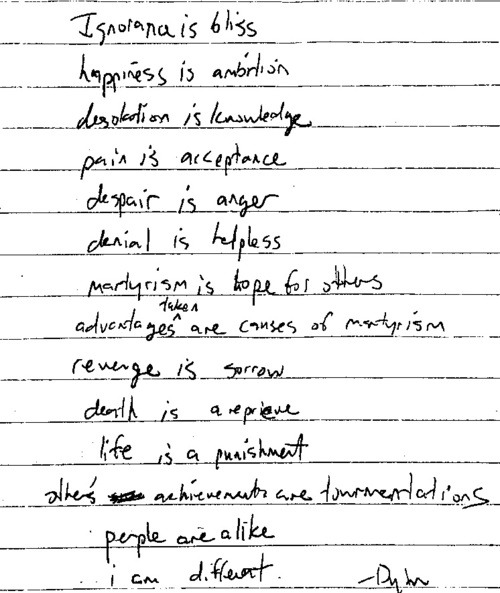 Ignorance is bliss
happiness is ambition
desolation is knowledge
pain is acceptance
despair is anger
denial is helpless
martyrism is hope for others
advantages taken are causes of martyrism
revenge is sorrow
death is a reprieve
life is a punishment
others' achievements are tourmentations
people are alike
i am different.
-Dylan